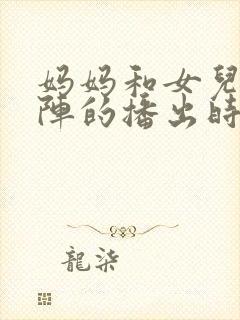 妈妈和女兒
陣的播出時
龍柒